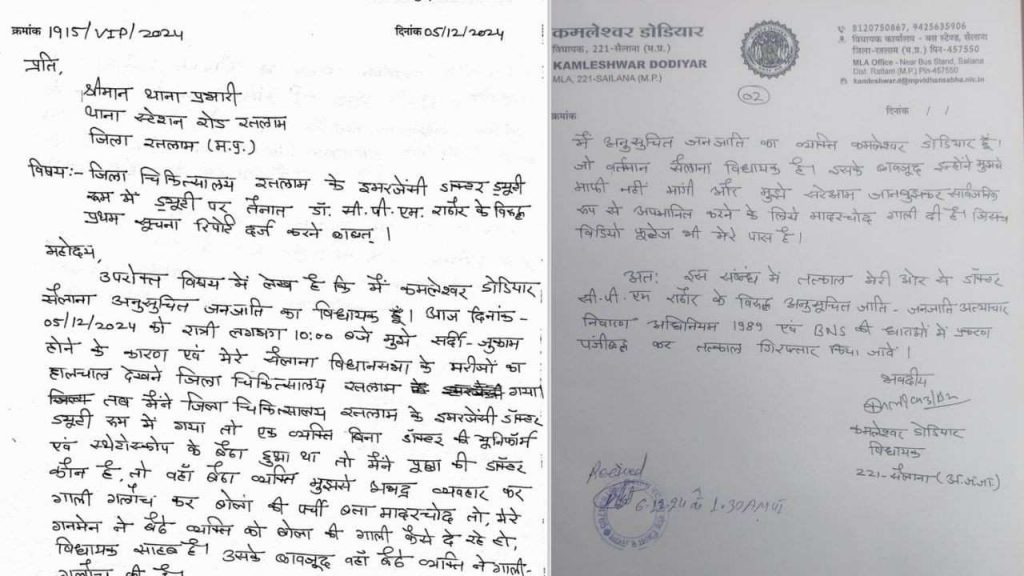 क्रमांक 1915/VIP/2024
दिनांक 05/12/2024
प्रति,
श्रीमान थाना प्रभारी
थाना स्टेशन रोड रतलाम
जिला रतलाम (म.प्र.)
विषय:- जिला चिकित्सालय रतलाम के इमरजेंसी डाक्टर ड्यूटी
रूम में ड्यूटी पर तैनात डॉ. सी. पी. एम. राठौर के विरुद्ध
प्रथम सूचना रिपोर्ट दर्ज करने बाबत् ।
महोदय,
उपरोक्त विषय में लेख है कि मैं कमलेश्वर डोडियार
सैलाना अनुसूचित जनजाति का विधायक हूँ। आज दिनांक -
05/12/2024 को रात्री लगभग 10:00 बजे मुझे सर्दी-जुकाम
होने के कारण एवं मेरे सैलाना विधानसभा के मरीजों का
हालचाल देखने जिला चिकित्सालय रतलाम गया
तब मैंने जिला चिकित्सालय रतलाम के इमरजेंसी डॉक्टर
ड्यूटी रूम में गया तो एक व्यक्ति बिना डॉक्टर की यूनिफॉर्म
एवं स्थेटोस्कोप के बैठा हुआ था तो मैंने पूछा की डॉक्टर
कौन है, तो वहाँ बैठा व्यक्ति मुझसे अभद्र व्यवहार कर
गाली गलौच कर बोला की पर्ची बना मादरचोद तो, मेरे
गनमेन ने बैठे व्यक्ति को बोला की गाली कैसे दे रहे हो,
विधायक साहब है। उसके बावजूद वहाँ बैठे व्यक्ति ने गाली-
गलौच की है
कमलेश्वर डोडियार
विधायक, 221-सैलाना (म.प्र.)
KAMLESHWAR DODIYAR
MLA, 221-SAILANA (M.P.)
9120750867, 9425635906
विधायक कार्यालय - बस स्टेण्ड, सैलाना
जिला-रतलाम (म.प्र.) पिन-457550
MLA Office - Near Bus Stand, Sailana
Dist. Ratlam (M.P.) Pin-457550
kamleshwar.d@mpvidhansabha.nic.in
02
क्रमांक
दिनांक / /
मैं अनुसुचित जनजाति का व्यक्ति कमलेश्वर डोडियार हूँ।
जो वर्तमान सैलाना विधायक है। इसके बावजूद इन्होंने मुझसे
माफी नहीं मांगी और मुझे सरेआम जानबुझकर सार्वजनिक
रूप से अपमानित करने के लिये मादरचोद गाली दी है। जिसका
विडियो फुटेज भी मेरे पास है।
अतः इस संबंध में तत्काल मेरी ओर से डॉक्टर
सी.पी.एम राठौर के विरुद्ध अनुसूचित जाति - जनजाति अत्याचार
निवारण अधिनियम 1989 एवं BNS की धाराओं में प्रकरण
पंजीबद्ध कर तत्काल गिरफ्तार किया जावे।
भवदीय
कमलेश्वर डोडियार
विधायक
221- सैलाना (अ.ज.जा.)
Received
6.12.24 के 1.30AM